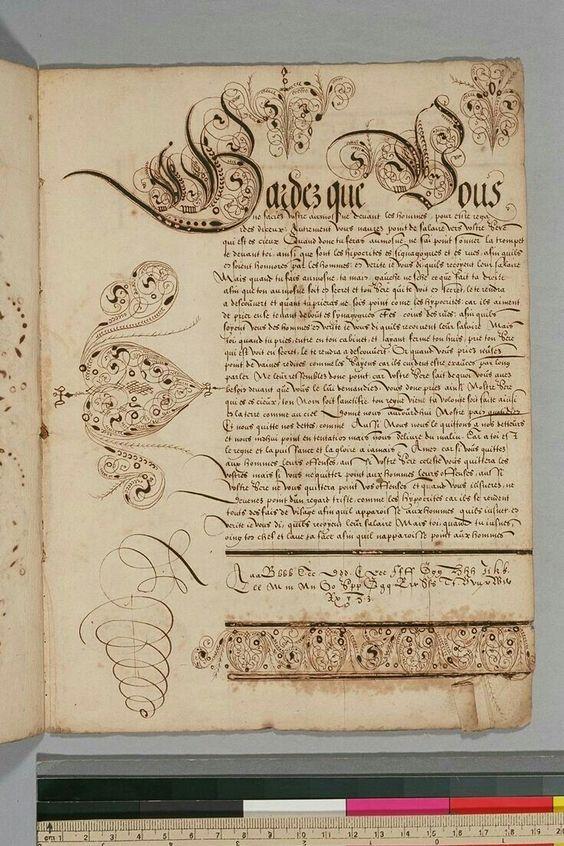 Gardez que Vous
ne faciez vostre aumosne devant les hommes, pour estre regar
dés d'iceux: Autrement vous n'aurez point de salaire vers vostre Pere
qui est es cieux. Quand donc tu feras aumosne, ne fai point sonner la trompet
te devant toi: ainsi que font les hypocrites es synagogues et es rues: afin quils
en soient honnorés par les hommes: en verite ie vous di quils recoivent leur salaire
Mais quand tu fais aumosne, ta main gauche ne sache ce que fait ta droite
afin que ton aumosne soit en secret, et ton Pere qui te voit en secret, te le rendra
a descouvert et quant tu prieras ne sois point come les hypocrites: car ils aiment
de prier en se tenant debout es synagogues et es coins des rues: afin quils
soyent veus des hommes en verite ie vous di quils recoivent leur salaire Mais
toi quand tu pries, entre en ton cabinet, et layant fermé ton huis, prie ton Pere
qui est voit en secret, le te rendra a descouvert. Or quand vous priez nusez
point de vaines redites comme les Payens: car ils cuident estre exaucés par long
parler. Ne leur ressembles donc point: car vostre Pere sait de quoi vous avez
besoin devant que vous le lui demandiez. Vous donc pries ainsi Nostre Pere
qui es es cieux, ton Nom soit sanctifie. ton regne vient ta volonté soit faite aussi
en la terre comme au ciel Donne nous aujourdhui Nostre pain quotidien
Et nous quitte nos dettes, comme Aussi Nous nous le quittons a nos detteurs
et nous indui point en tentation mais nous delivre du malin. Car a toi est
le regne et la puissance et la gloire a iamais Amen car si vous quittez
aux hommes leurs offenses, aussi vostre Pere celeste vous quittera les
vostres mais si vous ne quittez point aux hommes leurs offenses, aussi
vostre Pere ne vous quittera point vos offenses et quand vous iusneres, ne
devenez point d'un regard triste, comme les hypocrites car ils se rendent
tout desfais de visage afin quil apparoisse aux hommes quils iusnent en
verite ie vous di, quils recoyvent leur salaire Mais toi quand tu iusnes,
oing ton chef et lave ta face afin quil napparoisse point aux hommes
A a a B b b b C c c D d d E e e e F f f f G g g H h h J i k k
L l l M m N n O o S p p Q q q R r r S s s T t V v u x W w
X x y z z